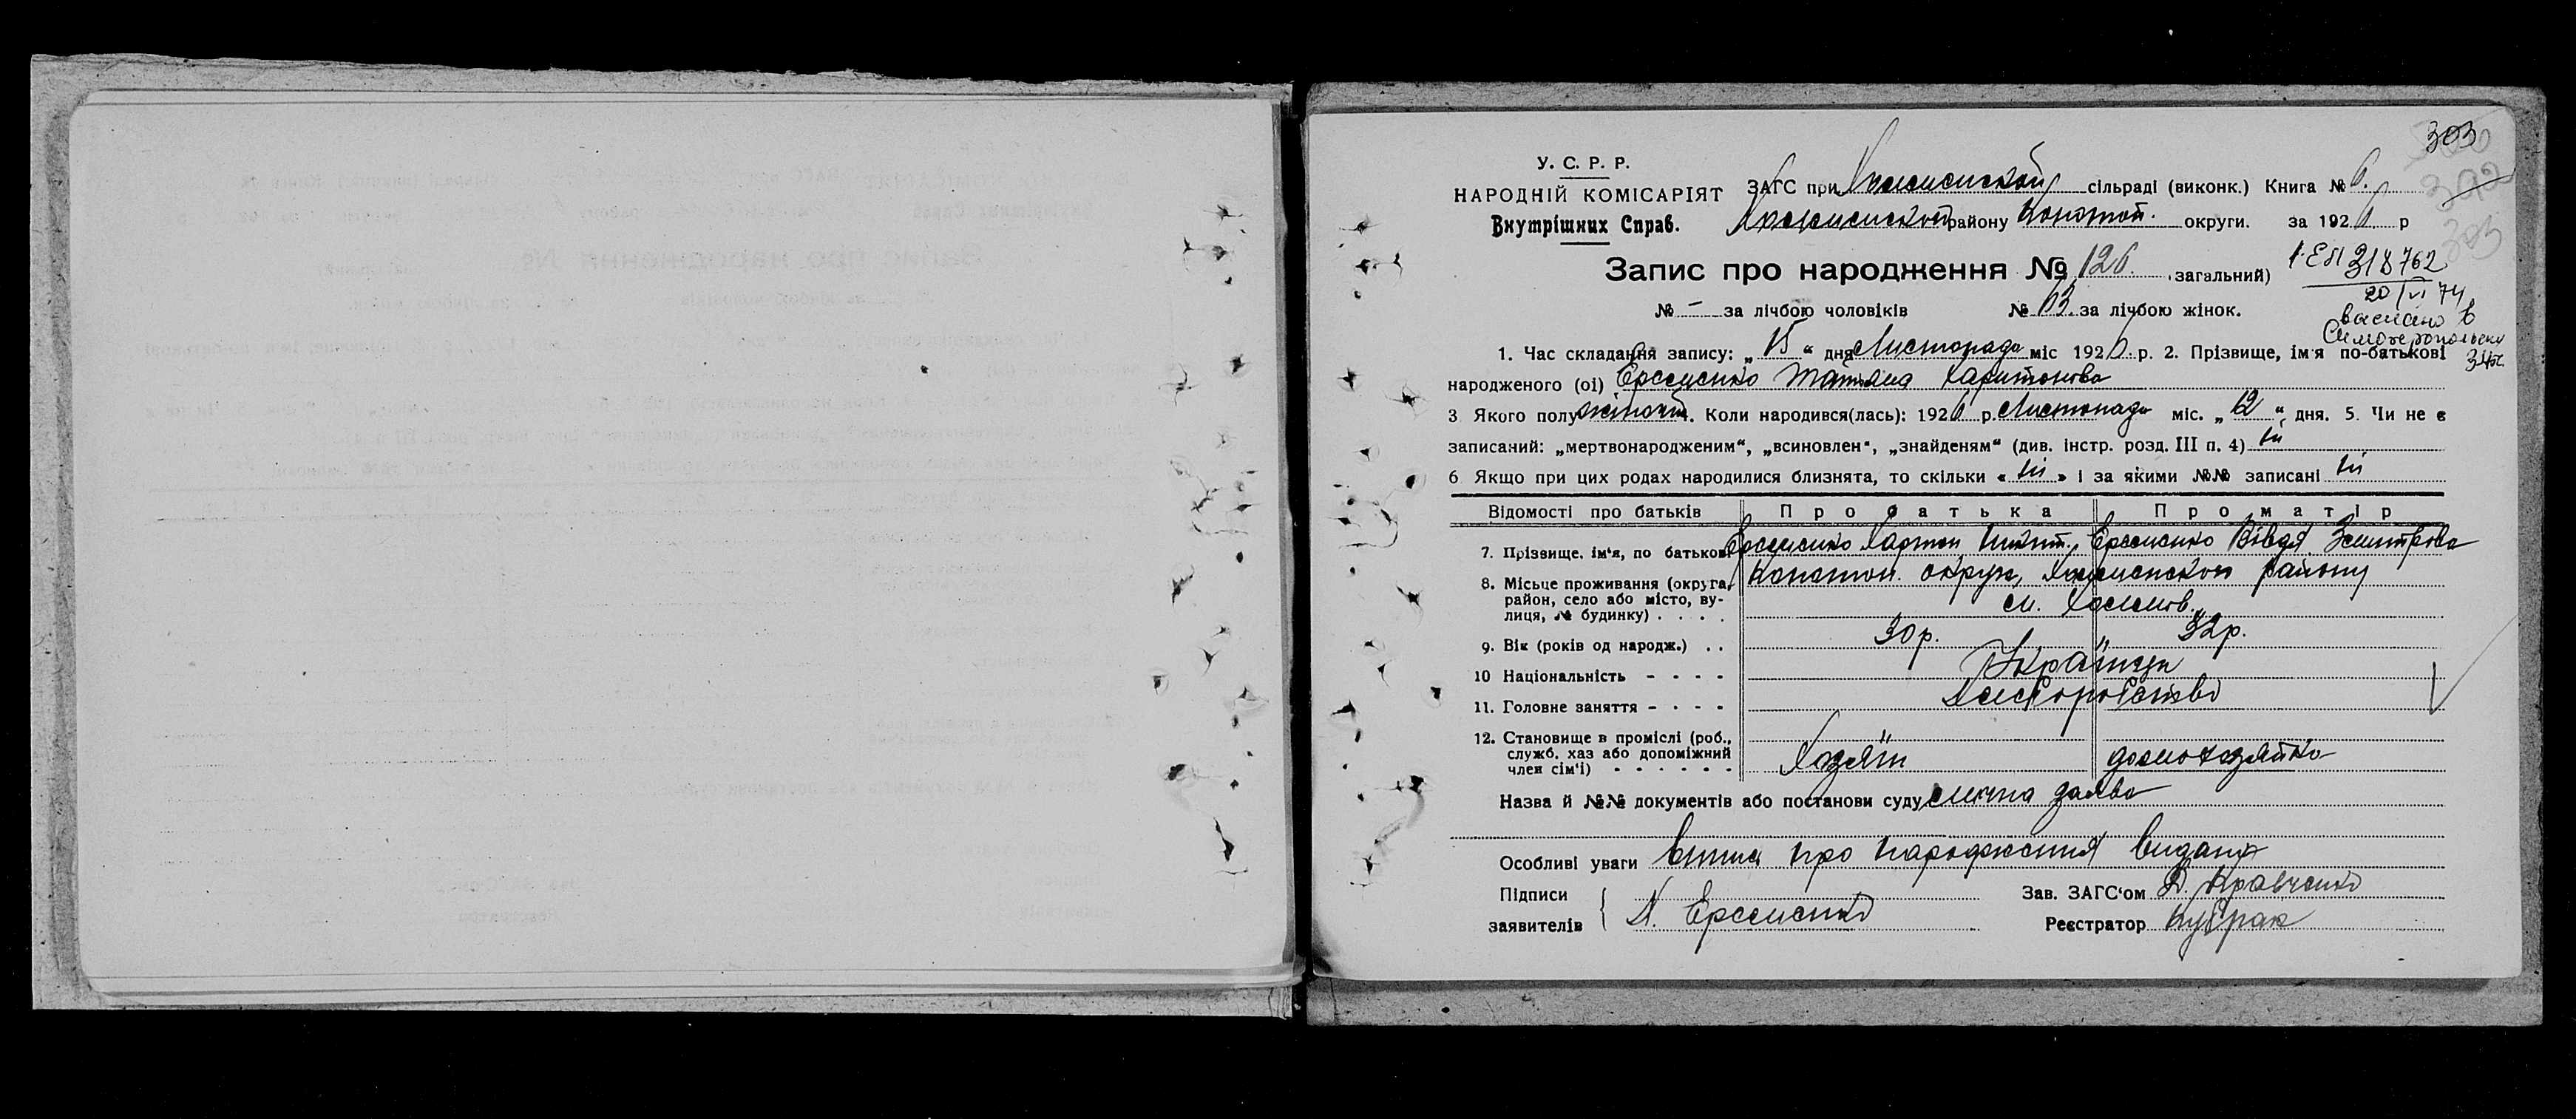 303
У. С. Р. Р.
НАРОДНІЙ КОМІСАРІЯТ
Внутрішних Справ.
ЗАГС при сільраді (виконк.) Книга № 6.
району Конотоп. округи. за 1926 р
302
303
Запис про народження № 126. загальний)
1-ЕЛ 318762
20/VI 74
№ – за лічбою чоловіків № 63. за лічбою жінок.
1. Час складання запису: „15“ дня Листопада міс 1926 р. 2. Прізвище, ім'я по-батькові
народженого (ої) Єременко Татяна Харитонова
3 Якого полу жіночої 4. Коли народився(лась): 1926 р. Листопада міс. „12“ дня. 5. Чи не є
записаний: „мертвонародженим“, „всиновлен“, „знайденям“ (див. інстр. розд. III п. 4) ні
6 Якщо при цих родах народилися близнята, то скільки « ні » і за якими №№ записані ні
Відомості про батьків Про батька Про матір
7. Прізвище, ім'я, по батькові Єременко Харитон Микит. Єременко Вівдя Земитрова
8. Місьце проживання (округа, район, село або місто, вулиця, № будинку) . . . . Конотоп. округи, району
м.
9. Вік (років од народж.) . . 30р. 32р.
10 Національність - - - - Українци
11. Головне заняття - - - - Хлеборобство
12. Становище в проміслі (роб., служб. хаз або допоміжний член сім'ї) - - - - - - Хазяїн домохазяйка
Назва й №№ документів або постанови суду смична заява
Особливі уваги Випис про народження видано
Підписи
заявителів Х. Єременко
Зав. ЗАГС'ом Д. Кравченко
Реєстратор Кубрак